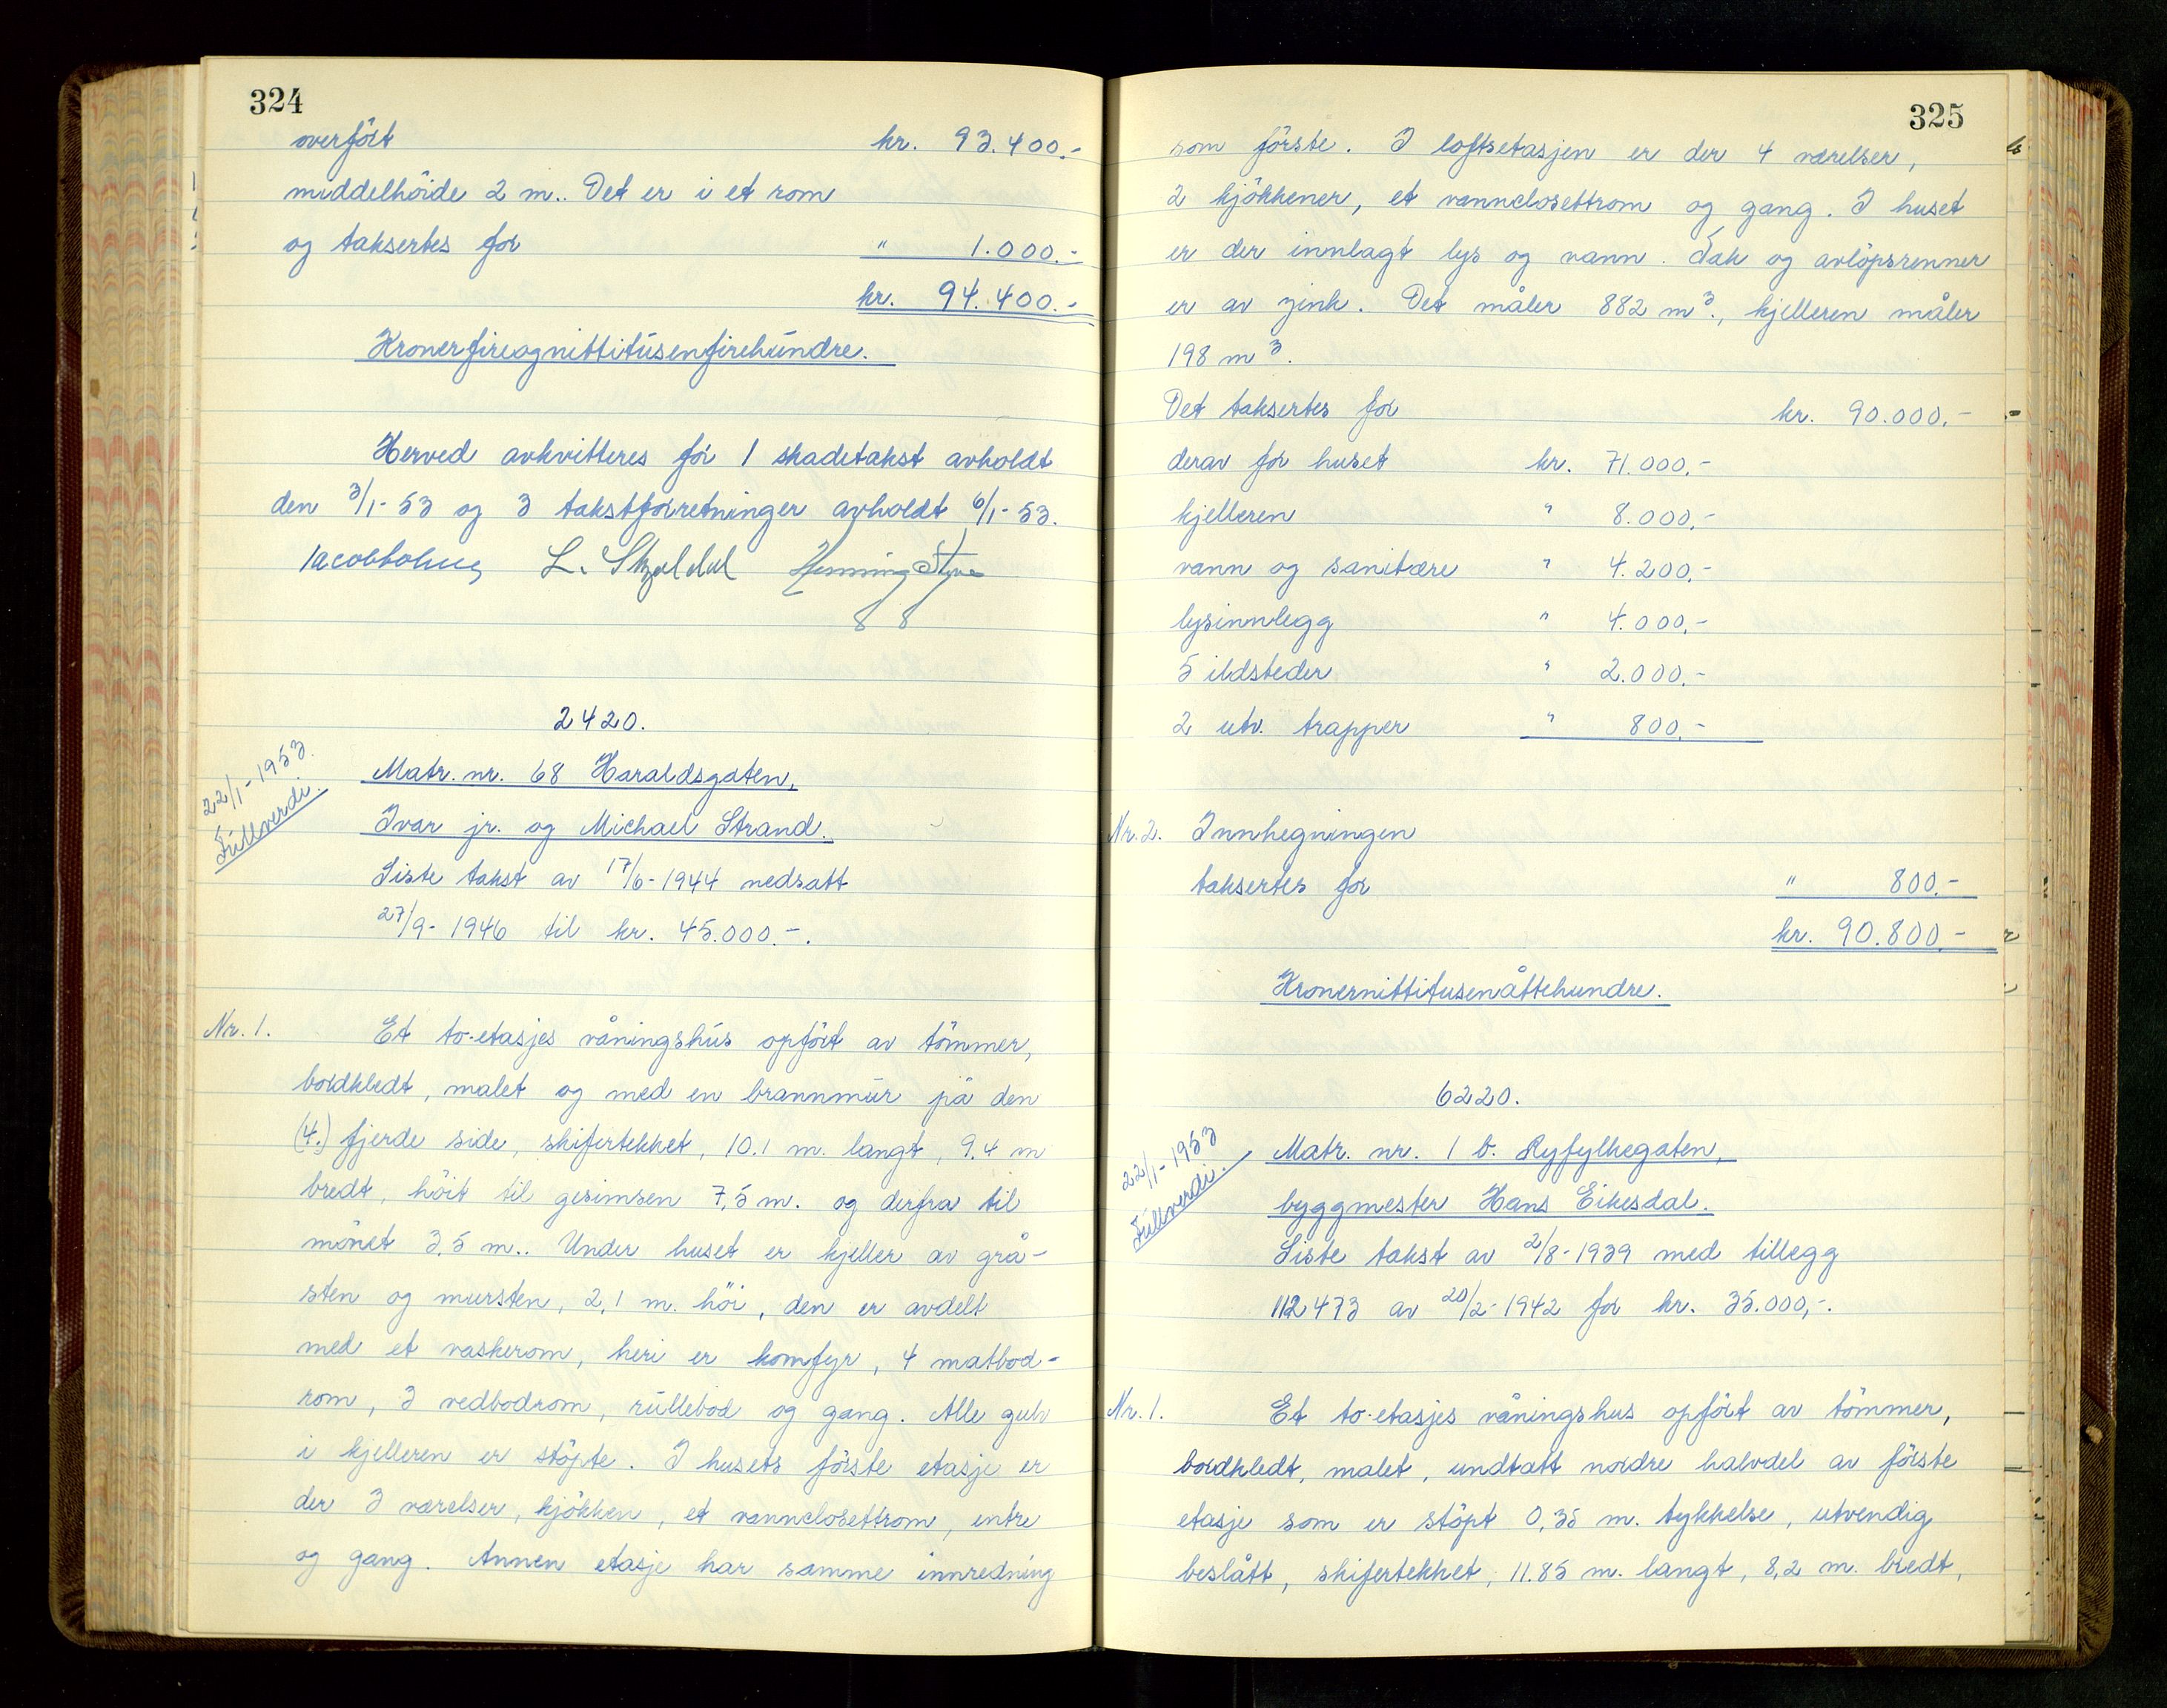 324
overfört kr. 93.400.-
middelhöide 2 m.. Det er i et rom
og taksertes for " 1.000.-
kr. 94.400.-
Kronerfireognittitusenfirehundre.
Herved avkvitteres for 1 skadetakst avholdt
den 3/1-53 og 3 takstforretninger avholdt 6/1-53.
L. Henning
2420.
22/1-1953.
Fullverdi.
Matr. nr. 68 Haraldsgaten,
Ivar jr. og Michael Strand.
Siste takst av 17/6-1944 nedsatt
27/9-1946 til kr. 45.000.-.
Nr. 1. Et to-etasjes våningshus opfört av tömmer,
bordkledt, malet og med en brannmur på den
(4.) fjerde side, skifertekket, 10.1 m. langt, 9.4 m
bredt, höit til gesimsen 7,5 m. og derfra til
mönet 3,5 m.. Under huset er kjeller av grå-
sten og mursten, 2,1 m. höi, den er avdelt
med et vaskerom, heri er komfyr, 4 matbod-
rom, 3 vedbodrom, rullebod og gang. Alle gulv
i kjelleren er stöpte. I husets förste etasje er
der 3 værelser, kjökken, et vannclosettrom, entre
og gang. Annen etasje har samme innredning
325
som förste. I loftsetasjen er der 4 værelser,
2 kjökkener, et vannclosettrom og gang. I huset
er der innlagt lys og vann. Tak og avlöpsrenner
er av zink. Det måler 882 m3., kjelleren måler
198 m3.
Det taksertes for kr. 90.000.-
derav for huset kr. 71.000.-
kjelleren " 8.000.-
vann og sanitære " 4.200.-
lysinnlegg " 4.000.-
5 ildsteder " 2.000.-
2 utv. trapper " 800.-
Nr. 2. Innhegningen
taksertes for " 800.-
kr. 90.800.-
Kronernittitusenåttehundre.
6220.
22/1-1953
Fullverdi.
Matr. nr. 1 b. Ryfylkegaten,
byggmester Hans Eikesdal.
Siste takst av 2/8-1939 med tillegg
112473 av 20/2-1942 for kr. 35.000,-.
Nr. 1. Et to-etasjes våningshus opfört av tömmer,
bordkledt, malet, undtatt nordre halvdel av förste
etasje som er stöpt 0,35 m. tykkelse, utvendig
beslått, skifertekket, 11.85 m. langt, 8,2 m. bredt,